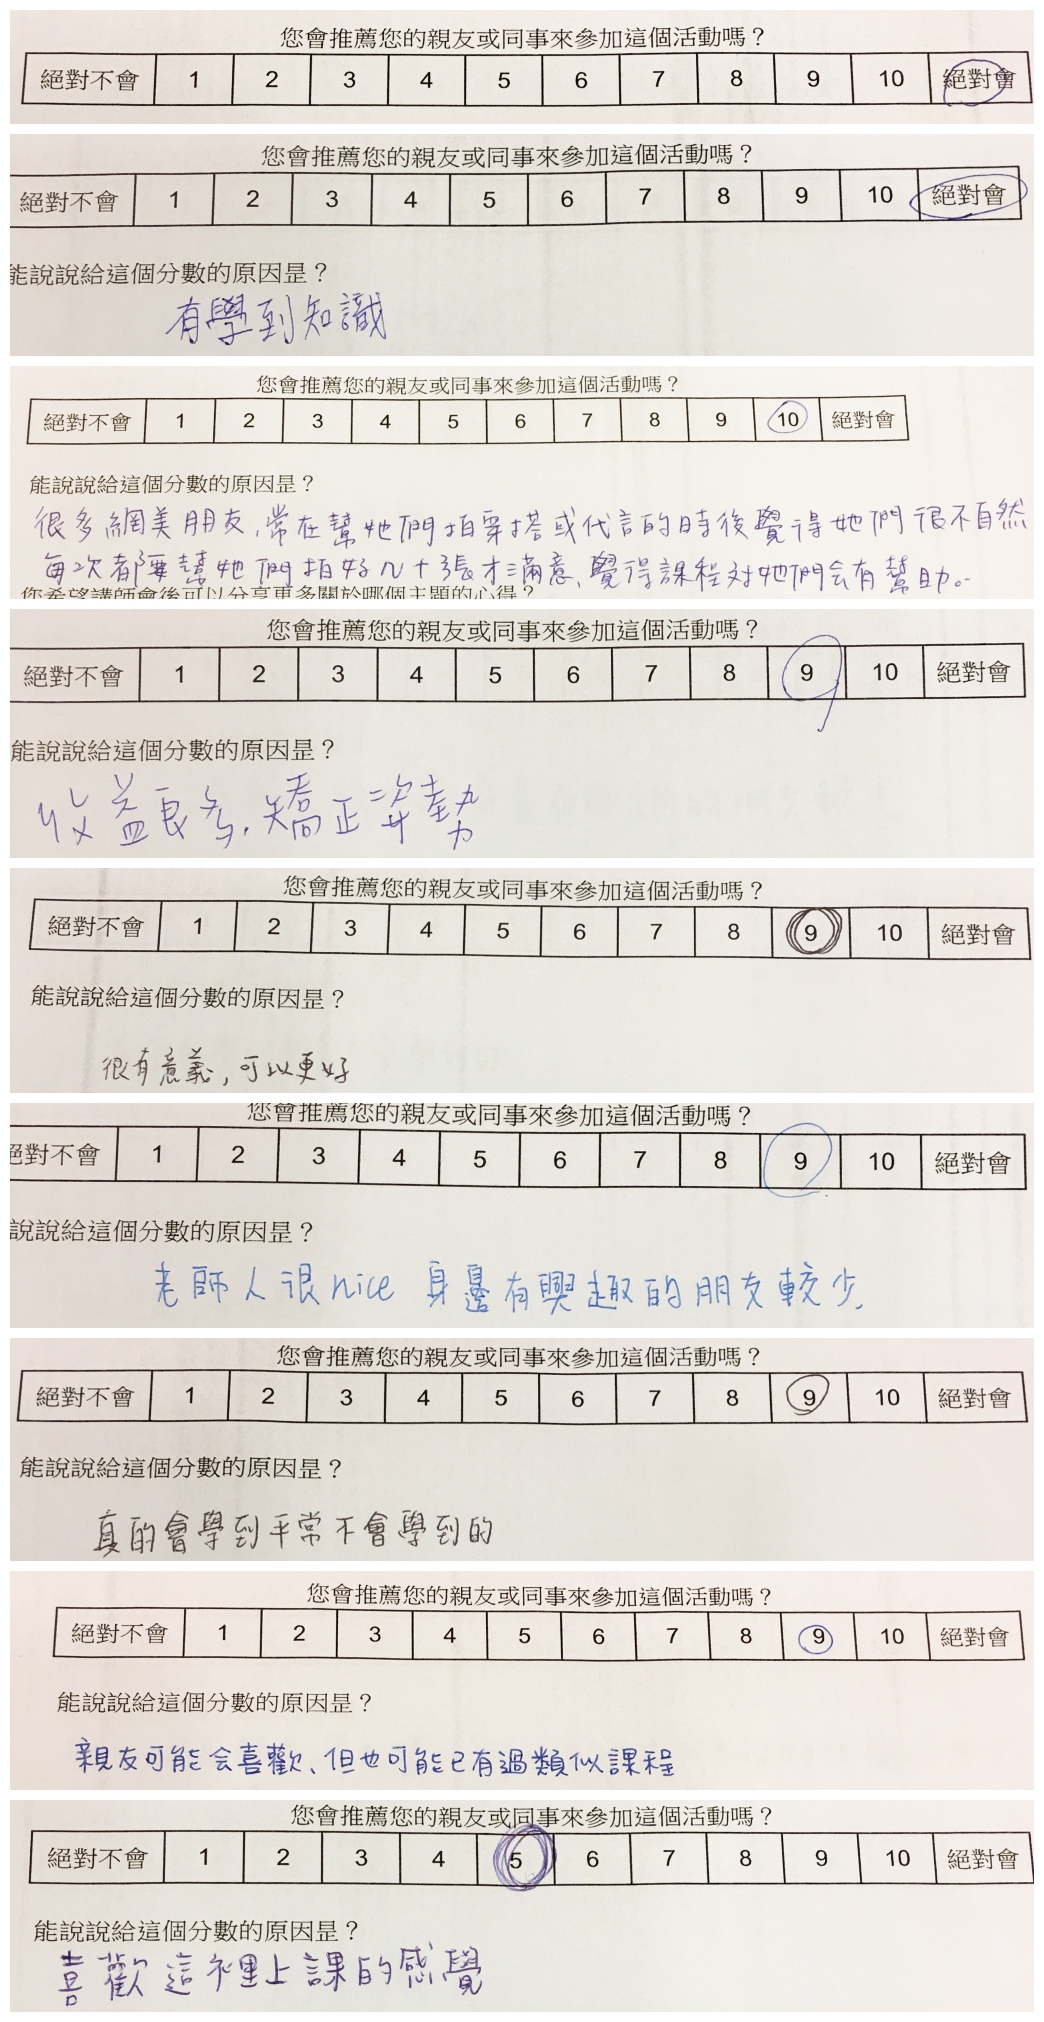 您會推薦您的親友或同事來參加這個活動嗎？
絕對不會 1 2 3 4 5 6 7 8 9 10 絕對會
您會推薦您的親友或同事來參加這個活動嗎？
絕對不會 1 2 3 4 5 6 7 8 9 10 絕對會
能說說給這個分數的原因是？
有學到知識
您會推薦您的親友或同事來參加這個活動嗎？
絕對不會 1 2 3 4 5 6 7 8 9 10 絕對會
能說說給這個分數的原因是？
很多網美朋友,常在幫她們拍穿搭或代言的時後覺得她們很不自然
每次都要幫她們拍好幾十張才滿意、覺得課程对她們会有幫助。
您希望講師會後可以分享更多關於哪個主題的心得？
您會推薦您的親友或同事來參加這個活動嗎？
絕對不會 1 2 3 4 5 6 7 8 9 10 絕對會
能說說給這個分數的原因是？
收益良多,矯正姿勢
您會推薦您的親友或同事來參加這個活動嗎？
絕對不會 1 2 3 4 5 6 7 8 9 10 絕對會
能說說給這個分數的原因是？
很有意義,可以更好
您會推薦您的親友或同事來參加這個活動嗎？
絕對不會 1 2 3 4 5 6 7 8 9 10 絕對會
說說給這個分數的原因是？
老師人很nice 身邊有興趣的朋友較少,
您會推薦您的親友或同事來參加這個活動嗎？
絕對不會 1 2 3 4 5 6 7 8 9 10 絕對會
能說說給這個分數的原因是？
真的會學到平常不會學到的
您會推薦您的親友或同事來參加這個活動嗎？
絕對不會 1 2 3 4 5 6 7 8 9 10 絕對會
能說說給這個分數的原因是？
親友可能会喜歡、但也可能已有過類似課程
您會推薦您的親友或同事來參加這個活動嗎？
絕對不會 1 2 3 4 5 6 7 8 9 10 絕對會
能說說給這個分數的原因是？
喜歡這裡上課的感覺